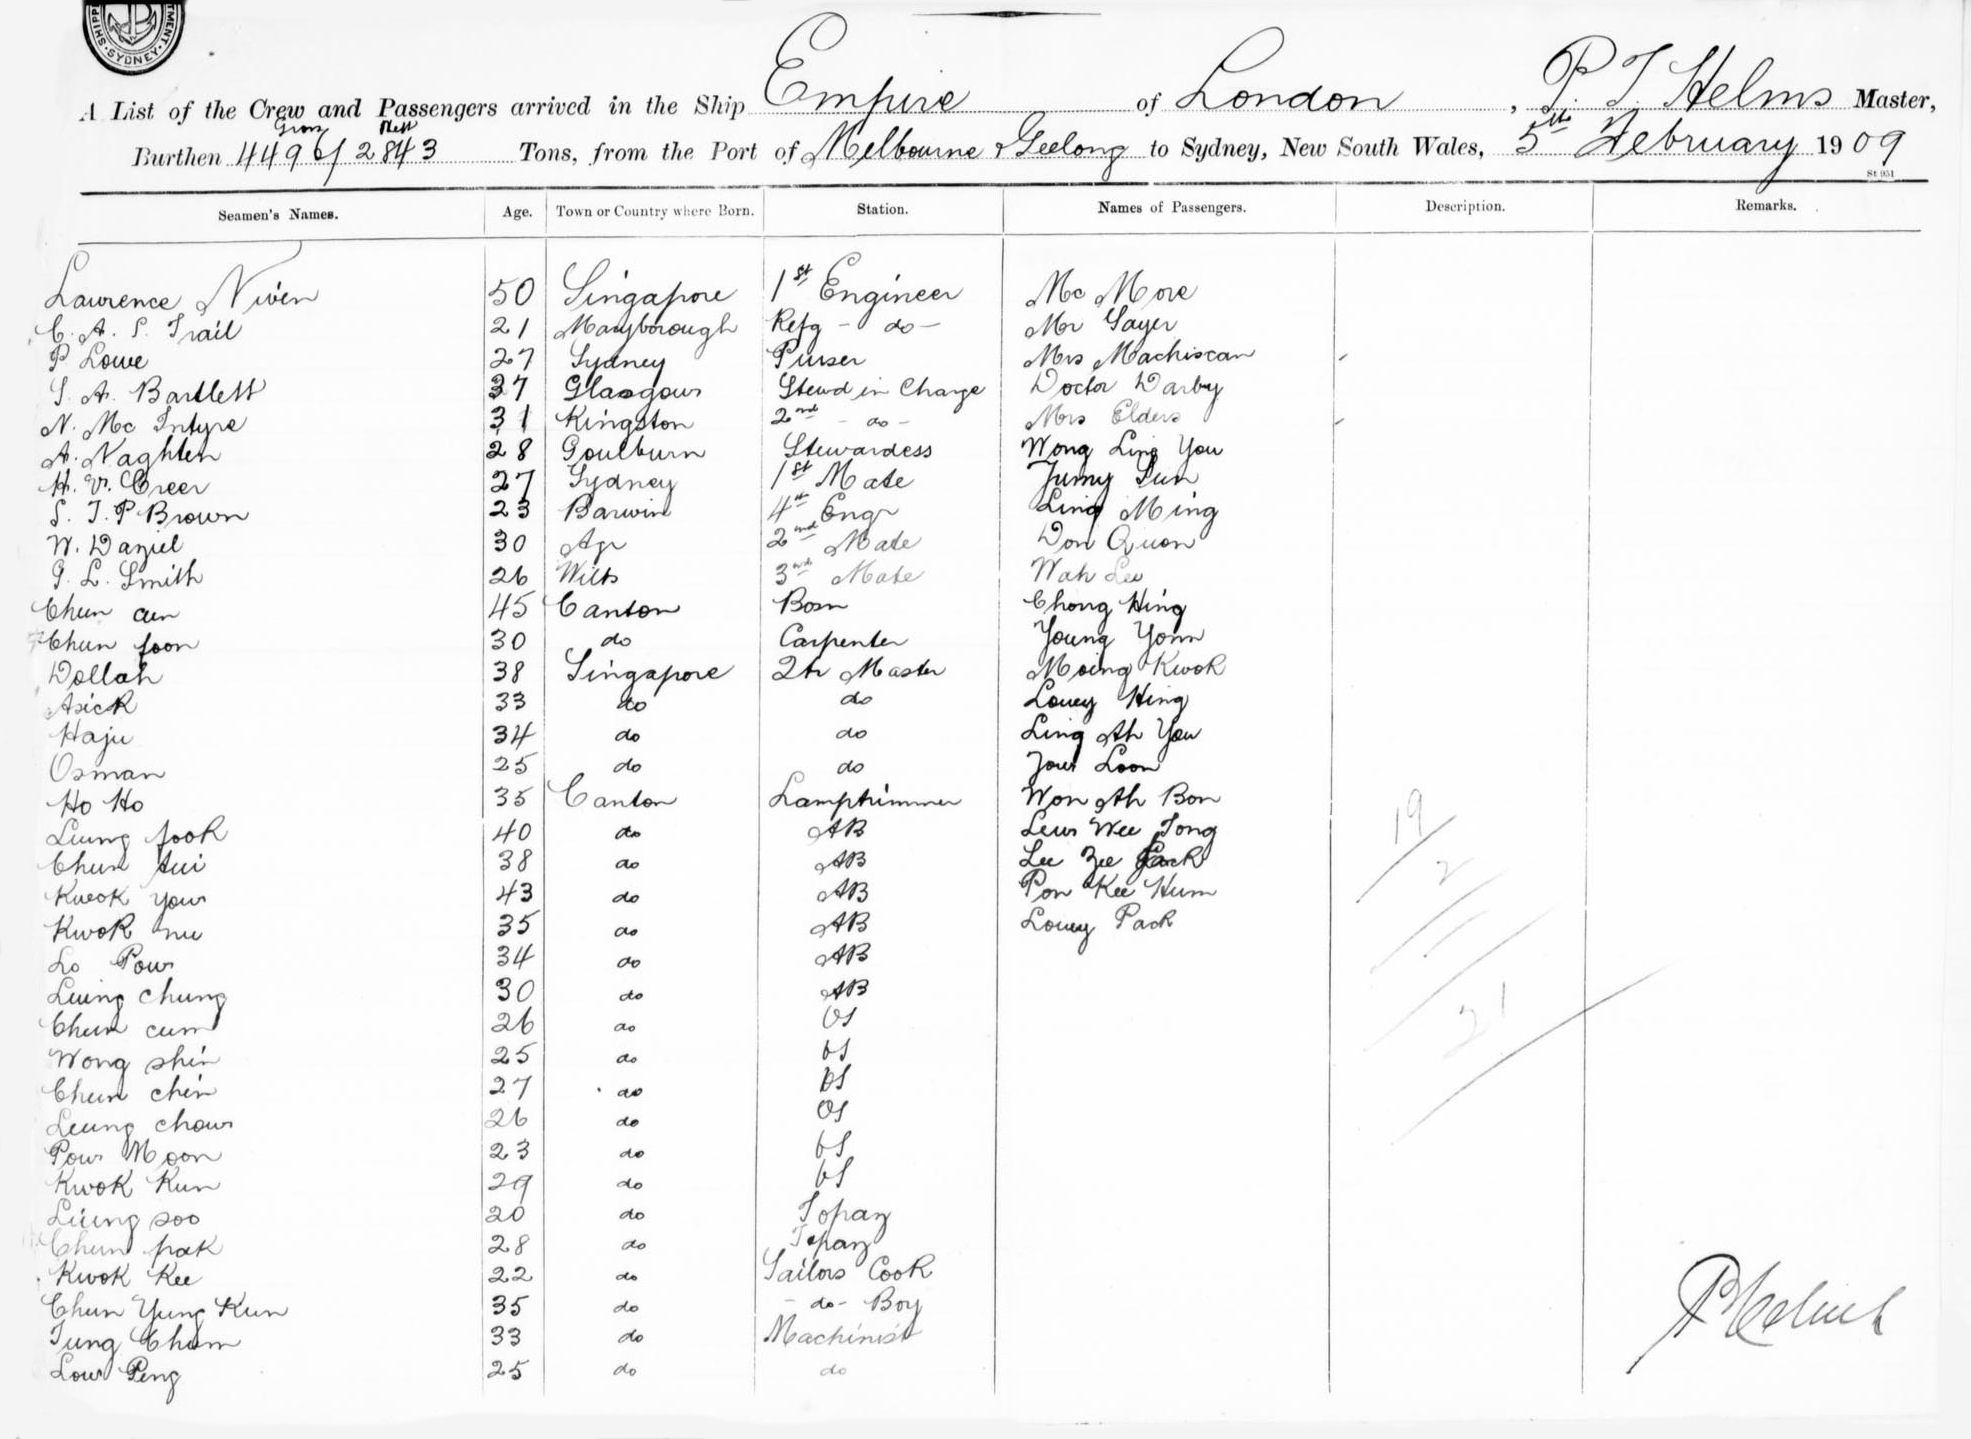 SHIPP MENT. SYDNEY.
A List of the Crew and Passengers arrived in the Ship Empire of London, P. T. Helms Master,
Burthen Gross 4496/ Nett 2843 Tons, from the Port of Melbourne & Geelong to Sydney, New South Wales, 5th February 1909
St 951
Seamen's Names. Age. Town or Country where Born. Station. Names of Passengers. Description. Remarks.
Lawrence Niven 50 Singapore 1st Engineer Mc More
C. A. S. Trail 21 Maryborough Refg - do - Mr Sayer
P Lowe 27 Sydney Purser Mrs
S. A. Bartlett 37 Glasgow Stewd in Charge Doctor Darby
N. Mc Intyre 31 Kingston 2nd - do - Mrs Elders
A. Naghten 28 Goulburn Stewardess Wong Ling You
H. V. Creer 27 Sydney 1st Mate Sun
S. T. P Brown 23 Barwin 4th Engr Ling Ming
W. Dalziel 30 2nd Mate Don Quon
G. L. Smith 26 Wilts 3rd Mate Wah Lee
Chun 45 Canton Bosn Chong Hing
Chun foon 30 do Carpenter Young Yonn
Dollah 38 Singapore Qtr Master Moing Kwok
Asick 33 do do Louey Hing
Haju 34 do do Ling Ah You
Osman 25 do do Loon
Ho Ho 35 Canton Lamptrimmer Won Ah Bon
Leung fook 40 do AB Lew Wee Tong 19
Chun tui 38 do AB Lee Zee 2
Kwok yow 43 do AB Pon Kee Hum
Kwok 35 do AB Louey Pack
Lo Pow 34 do AB
Leung chung 30 do AB
Chun cum 26 do OS 21
Wong shin 25 do OS
Chun chin 27 do OS
Leung chow 26 do OS
Pow Moon 23 do OS
Kwok Kun 29 do OS
Leung soo 20 do Topaz
Chun pak 28 do Topaz
Kwok Kee 22 do Sailors Cook
Chun Yung Kun 35 do - do - Boy
Tung Chum 33 do Machinist
Low Peng 25 do do